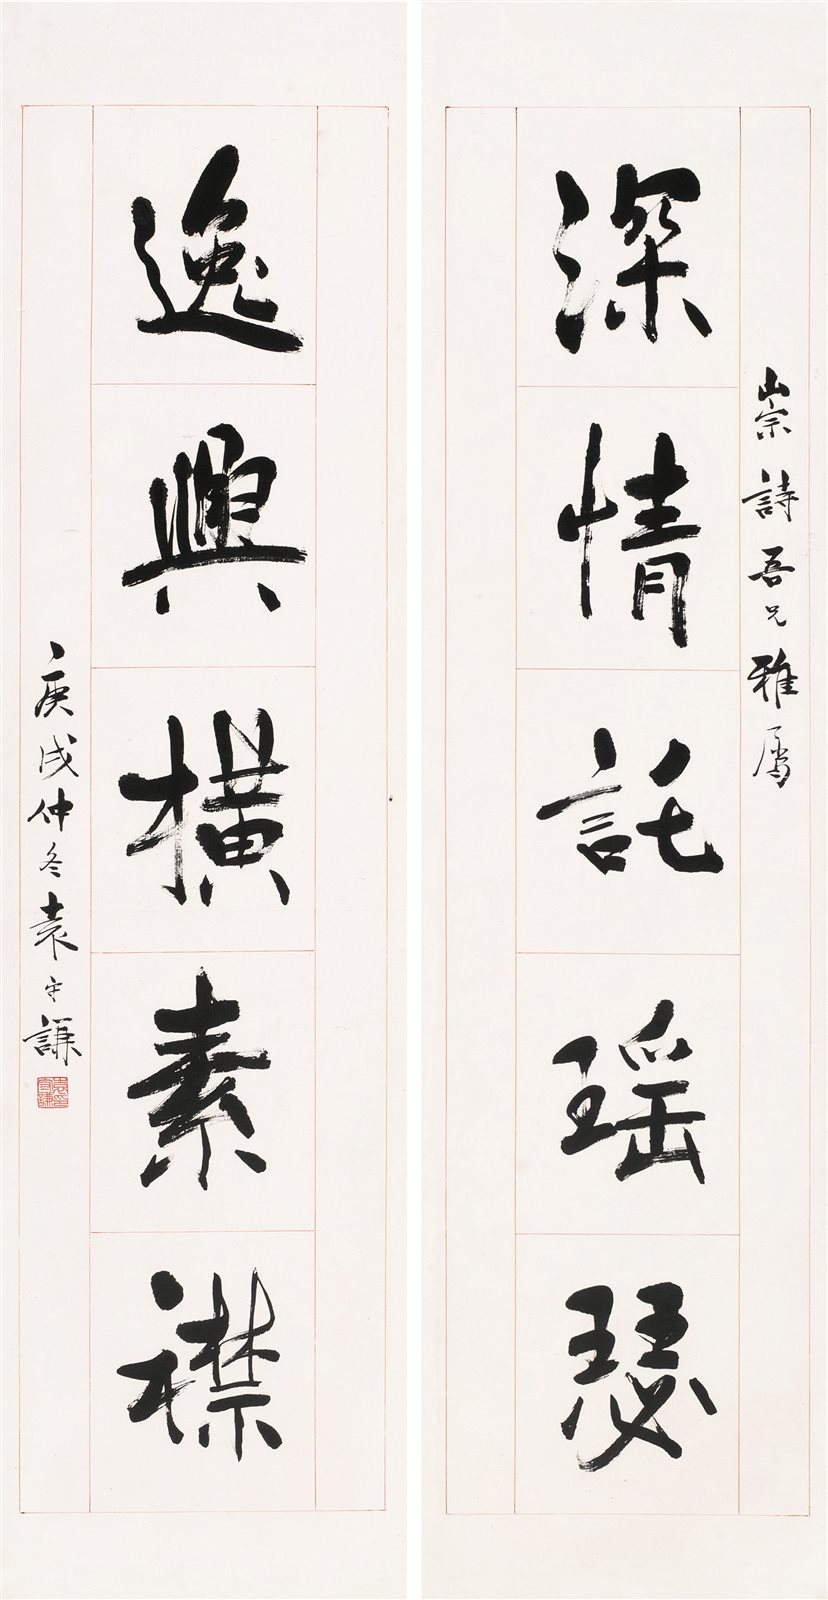 崇詩吾兄雅屬
深情託瑤瑟
逸興橫素襟
庚戌仲冬袁守謙
袁守謙